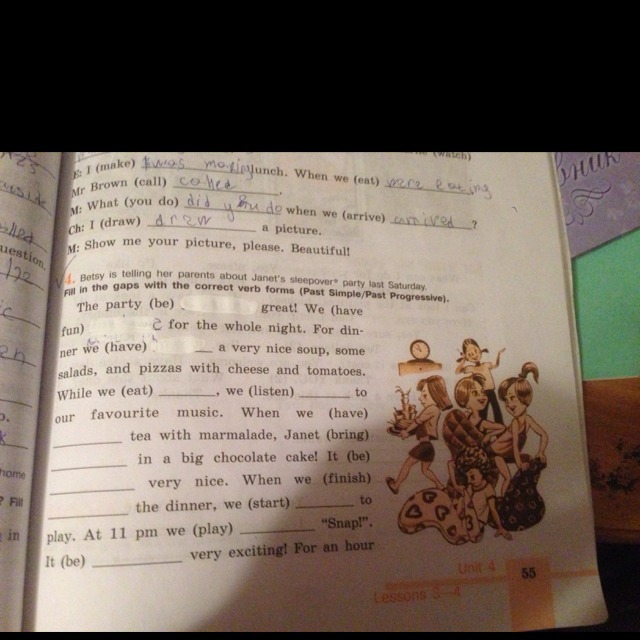 (watch)
E: I (make) was making lunch. When we (eat) were eating
Mr Brown (call) called.
M: What (you do) did you do when we (arrive) arrived?
Ch: I (draw) drew a picture.
M: Show me your picture, please. Beautiful!
4. Betsy is telling her parents about Janet's sleepover* party last Saturday.
Fill in the gaps with the correct verb forms (Past Simple/Past Progressive).
The party (be) great! We (have
fun) for the whole night. For din-
ner we (have) ____ a very nice soup, some
salads, and pizzas with cheese and tomatoes.
While we (eat) ____, we (listen) ____ to
our favourite music. When we (have)
____ tea with marmalade, Janet (bring)
____ in a big chocolate cake! It (be)
____ very nice. When we (finish)
____ the dinner, we (start) ____ to
play. At 11 pm we (play) ____ "Snap!".
It (be) ____ very exciting! For an hour
Unit 4
55
Lessons 3–4
uestion.
home
? Fill
in
вник